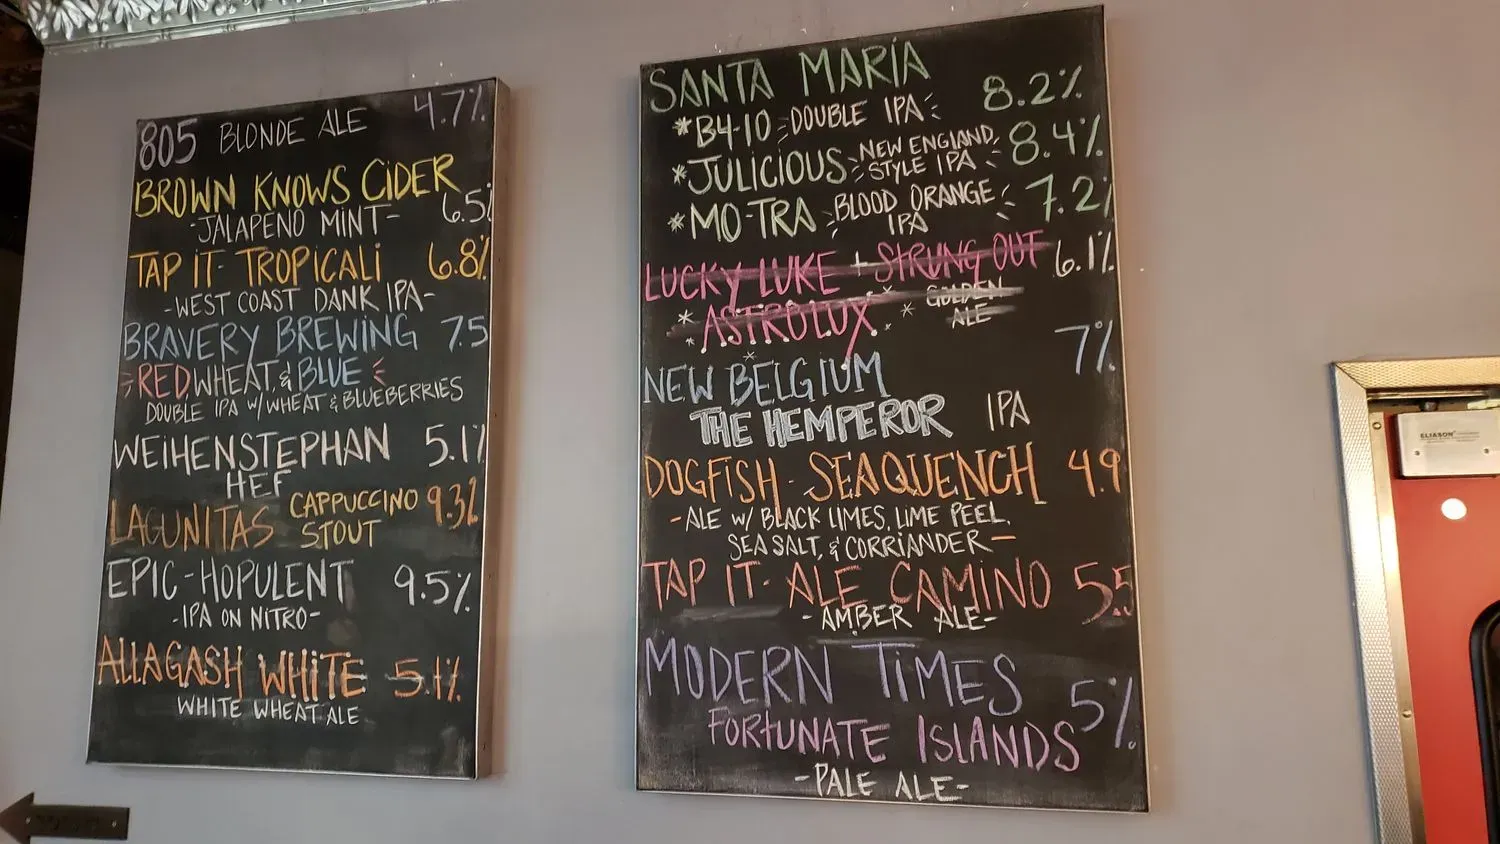 805 BLONDE ALE 4.7%
BROWN KNOWS CIDER
-JALAPENO MINT- 6.5%
TAP IT- TROPICALI 6.8%
-WEST COAST DANK IPA-
BRAVERY BREWING 7.5
RED, WHEAT, & BLUE
DOUBLE IPA W/ WHEAT & BLUEBERRIES
WEIHENSTEPHAN 5.1%
HEF
LAGUNITAS CAPPUCCINO STOUT 9.3%
EPIC-HOPULENT 9.5%
-IPA ON NITRO-
ALLAGASH WHITE 5.1%
WHITE WHEAT ALE
SANTA MARIA
*B4-10 DOUBLE IPA 8.2%
*JULICIOUS NEW ENGLAND STYLE IPA 8.4%
*MO-TRA BLOOD ORANGE IPA 7.2%
LUCKY LUKE + STRUNG OUT 6.1%
* ASTROLUX * GOLDEN ALE
NEW BELGIUM 7%
THE HEMPEROR IPA
DOGFISH - SEAQUENCH 4.9
-ALE W/ BLACK LIMES, LIME PEEL,
SEA SALT, & CORRIANDER-
TAP IT- ALE CAMINO 5.5
-AMBER ALE-
MODERN TIMES 5%
FORTUNATE ISLANDS
-PALE ALE-
ELIASON